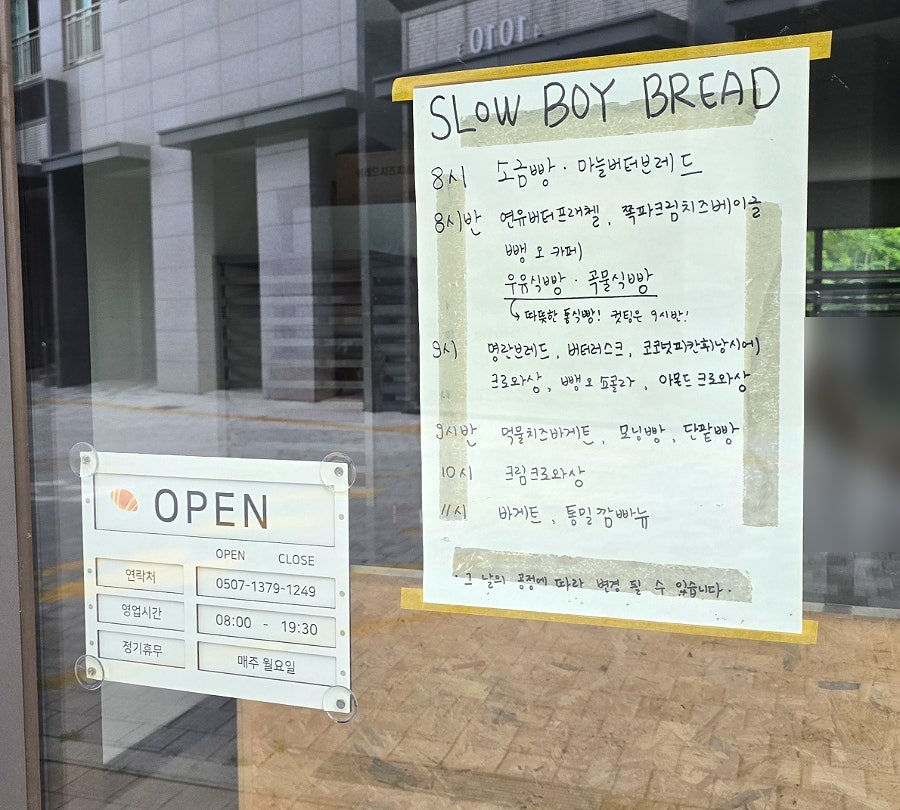 SLOW BOY BREAD
8시 소금빵 · 마늘버터브레드
8시반 연유버터프레첼, 쪽파크림치즈베이글
뺑 오 카페
우유식빵 · 곡물식빵
따뜻한 통식빵! 컷팅은 9시반!
9시 명란브레드, 버터러스크, 코코넛피칸휘낭시에
크로와상, 뺑 오 쇼콜라, 아몬드 크로와상
9시반 먹물치즈바게트, 모닝빵, 단팥빵
10시 크림크로와상
11시 바게트, 통밀깜빠뉴
· 그 날의 공정에 따라 변경 될 수 있습니다.
OPEN
OPEN CLOSE
연락처 0507-1379-1249
영업시간 08:00 - 19:30
정기휴무 매주 월요일
1010